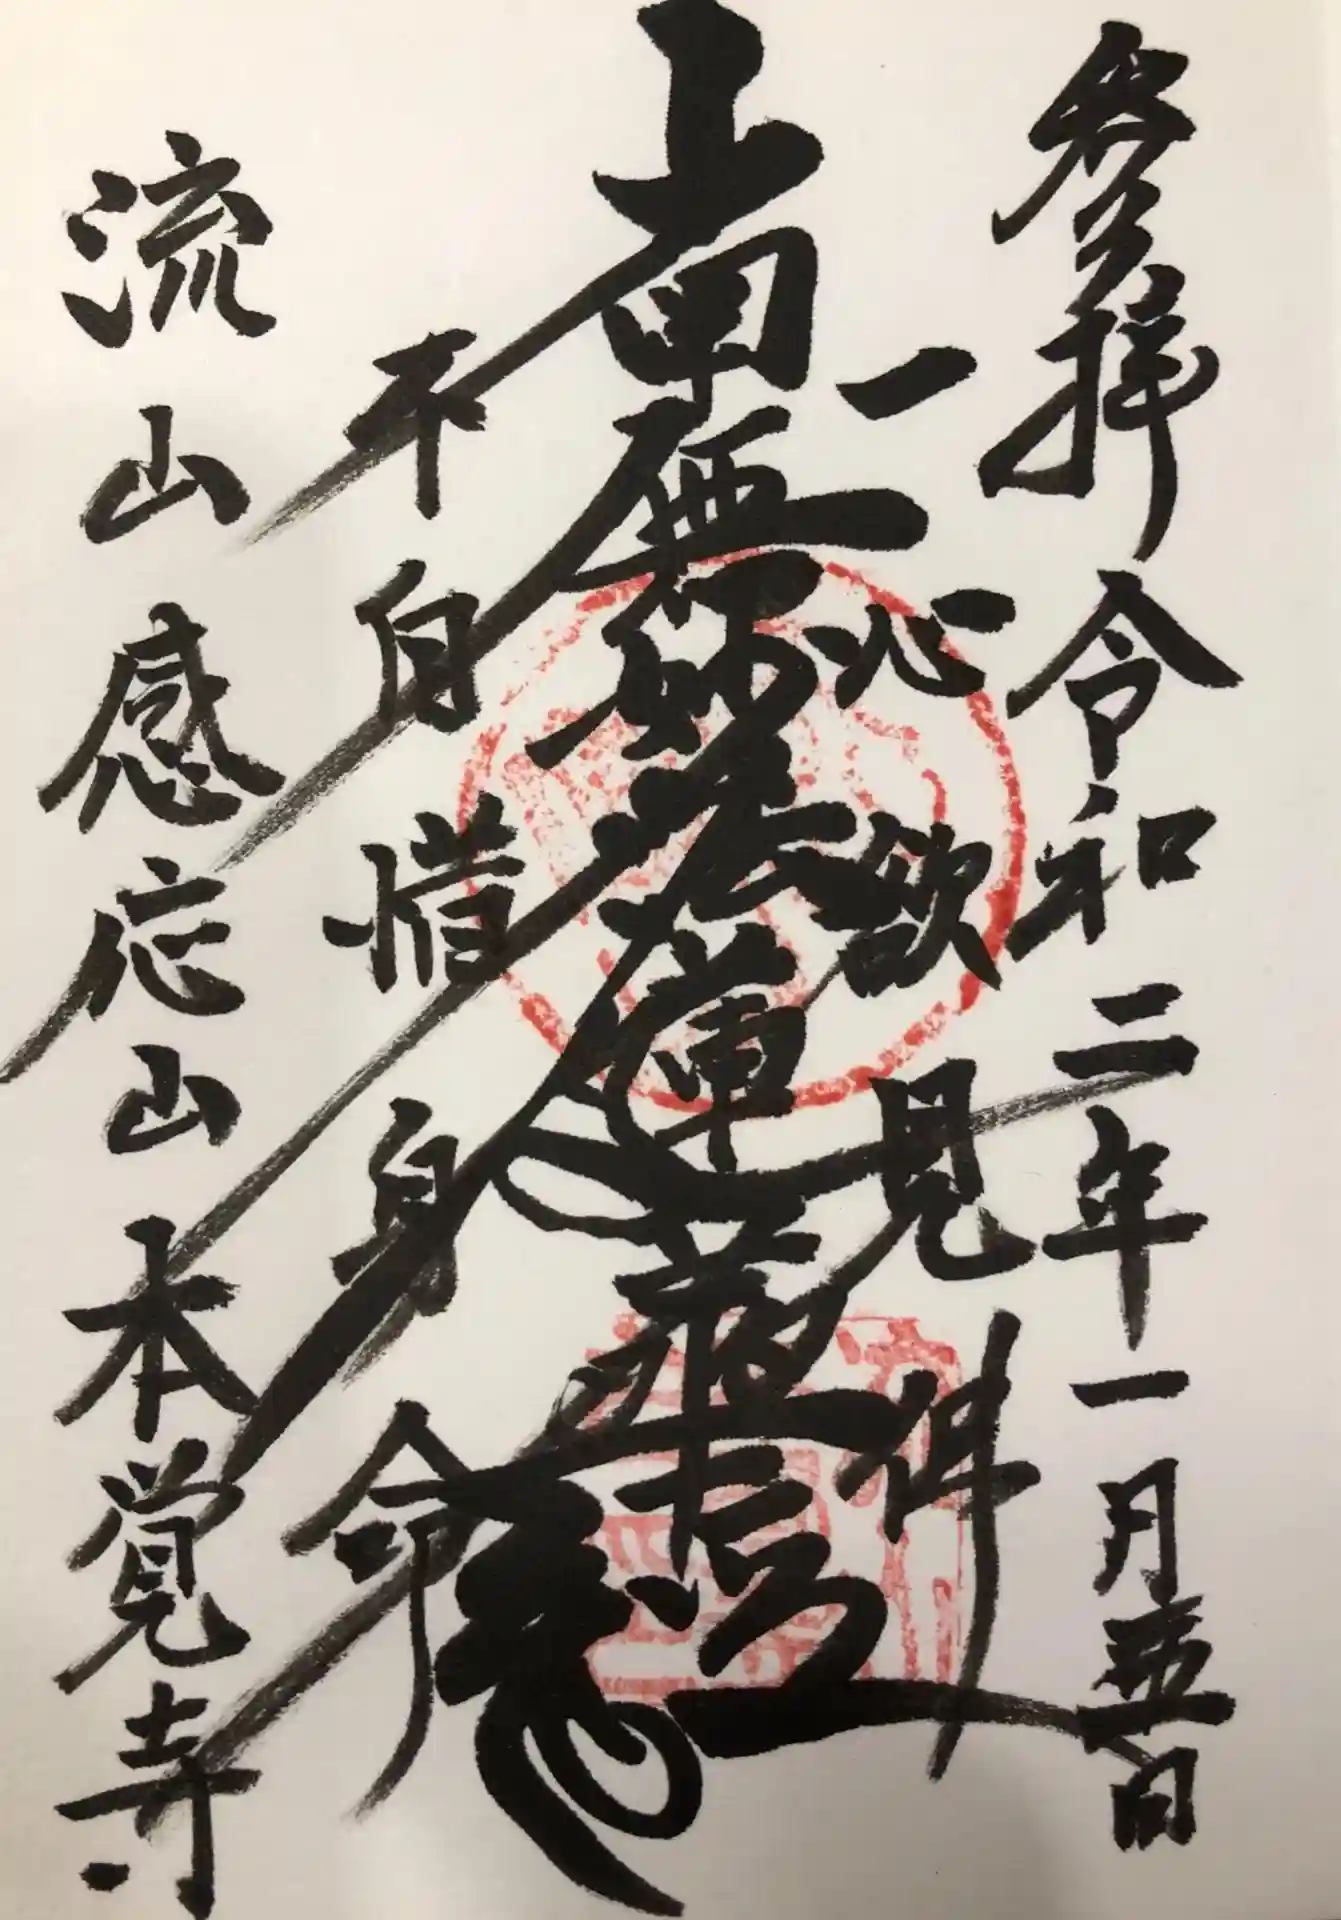 参拝 令和二年一月吉日
一心欲見佛
南無妙法蓮華経
不自惜身命
流山感応山本覚寺